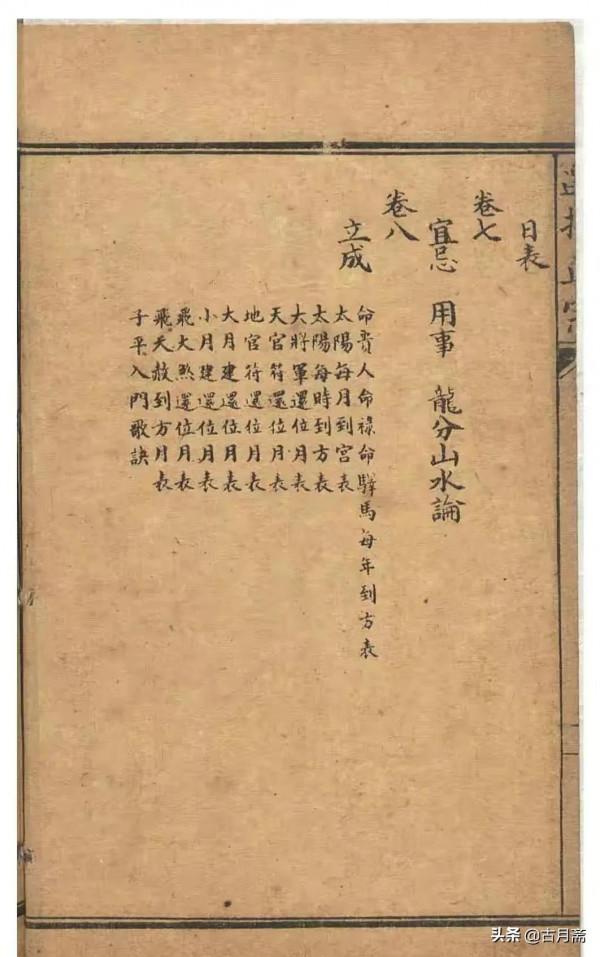 日表
卷七
宜忌　用事　龍分山水論
卷八
立成
命貴人命祿命驛馬每年到方表
太陽每月到宮表
太陽每時到方表
大將軍還位月表
天官符還位月表
地官符還位月表
大月建還位月表
小月建還位月表
飛大煞還位月表
飛天赦到方月表
子平入門歌訣
头条 @古月斋